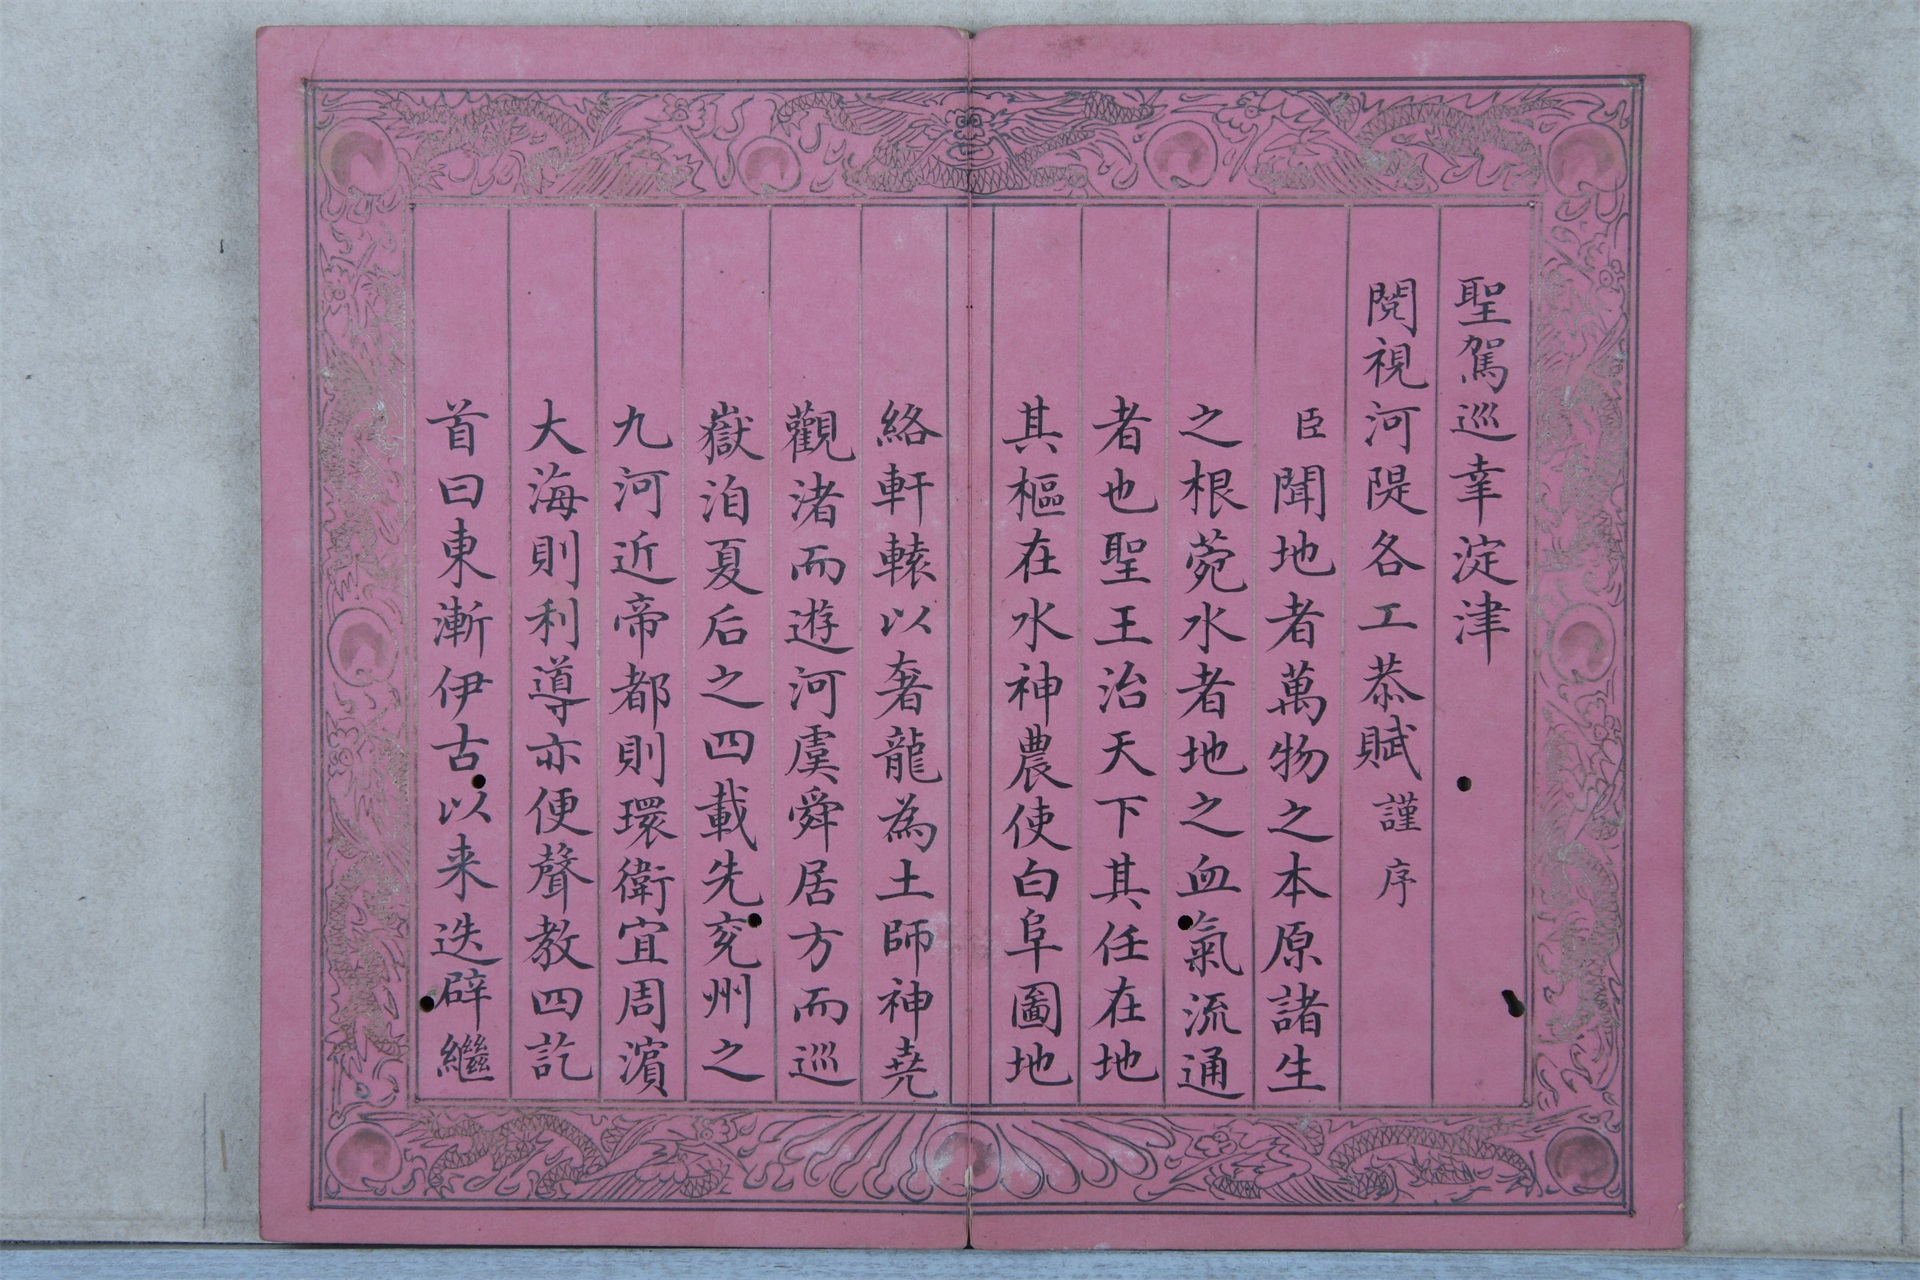 聖駕巡幸淀津
閱視河隄各工恭賦謹序
臣聞地者萬物之本原諸生
之根菀水者地之血氣流通
者也聖王治天下其任在地
其樞在水神農使白阜圖地
絡軒轅以奢龍為土師神堯
觀渚而遊河虞舜居方而巡
嶽洎夏后之四載先兖州之
九河近帝都則環衛宜周濵
大海則利導亦便聲教四訖
首曰東漸伊古以来迭辟繼